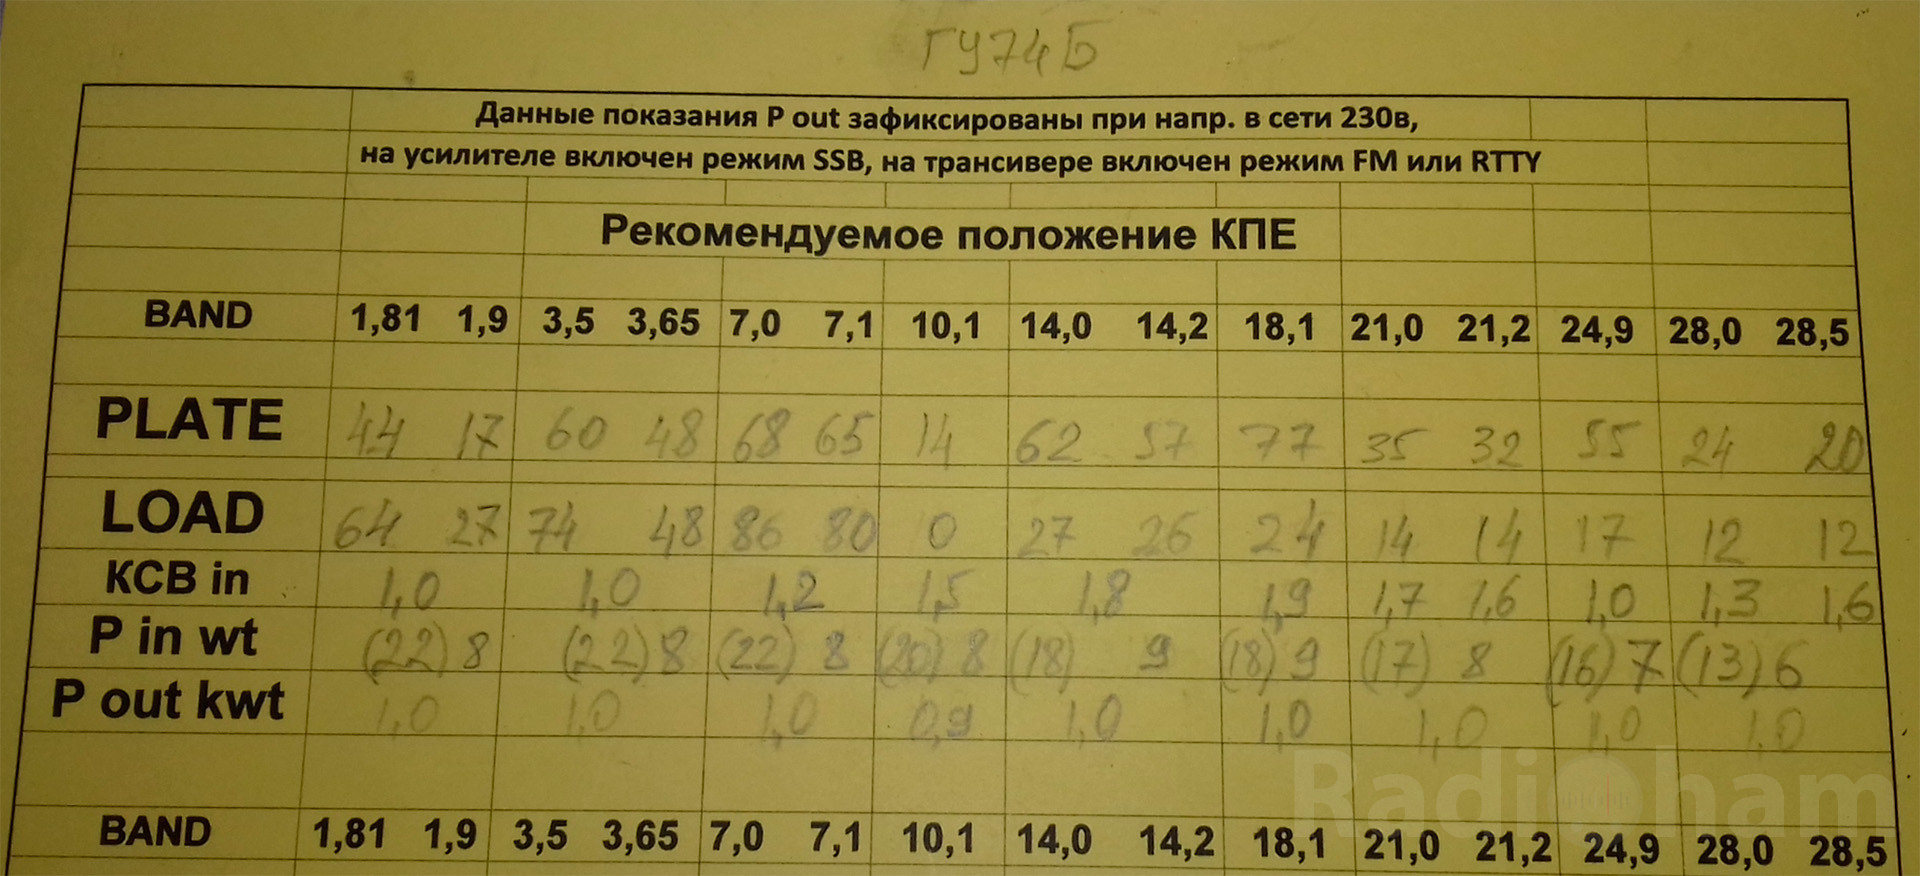 ГУ74Б
Данные показания P out зафиксированы при напр. в сети 230в,
на усилителе включен режим SSB, на трансивере включен режим FM или RTTY
Рекомендуемое положение КПЕ
BAND 1,81 1,9 3,5 3,65 7,0 7,1 10,1 14,0 14,2 18,1 21,0 21,2 24,9 28,0 28,5
PLATE 44 17 60 48 68 65 14 62 57 77 35 32 55 24 20
LOAD 64 27 74 48 86 80 0 27 26 24 14 14 17 12 12
КСВ in 1,0 1,0 1,2 1,5 1,8 1,9 1,7 1,6 1,0 1,3 1,6
P in wt (22) 8 (22) 8 (22) 8 (20) 8 (18) 9 (18) 9 (17) 8 (16) 7 (13) 6
P out kwt 1,0 1,0 1,0 0,9 1,0 1,0 1,0 1,0 1,0
RadiOham
BAND 1,81 1,9 3,5 3,65 7,0 7,1 10,1 14,0 14,2 18,1 21,0 21,2 24,9 28,0 28,5